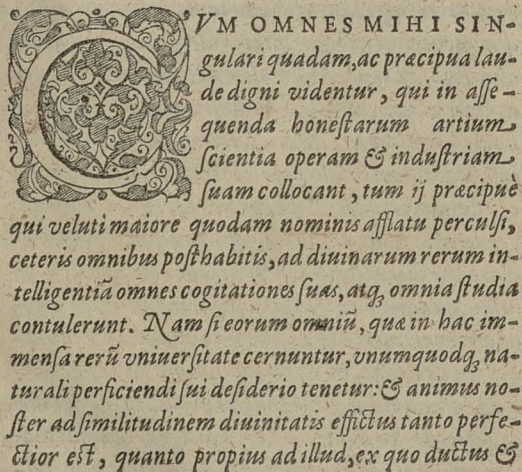 CVM OMNES MIHI SIN-
gulari quadam, ac præcipua lau-
de digni videntur, qui in aſſe-
quenda honeſtarum artium
ſcientia operam & induſtriam
ſuam collocant, tum ij præcipuè
qui veluti maiore quodam nominis afflatu perculſi,
ceteris omnibus poſthabitis, ad diuinarum rerum in-
telligentiã omnes cogitationes ſuas, atq; omnia ſtudia
contulerunt. Nam ſi eorum omniũ, quæ in hac im-
menſa rerũ vniuerſitate cernuntur, vnumquodq; na-
turali perficiendi ſui deſiderio tenetur: & animus no-
ſter ad ſimilitudinem diuinitatis effictus tanto perfe-
ctior eſt, quanto propius ad illud, ex quo ductus &